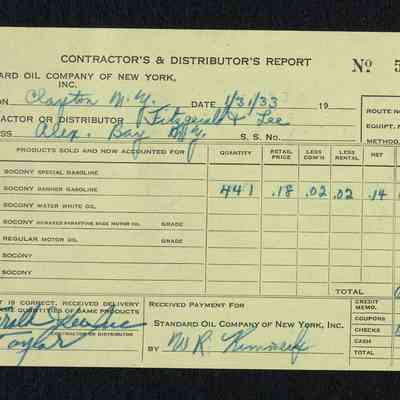 CONTRACTOR'S & DISTRIBUTOR'S REPORT Nº 5
DARD OIL COMPANY OF NEW YORK,
INC.
ON Clayton N.Y. DATE 1/31/33 19
ACTOR OR DISTRIBUTOR Fitzgerald & Lee
ESS Alex. Bay N.Y. S. S. No.
ROUTE NO
EQUIPT. N
METHOD
PRODUCTS SOLD AND NOW ACCOUNTED FOR QUANTITY RETAIL PRICE LESS COM'N LESS RENTAL NET
SOCONY SPECIAL GASOLINE
SOCONY BANNER GASOLINE 441 .18 .02 .02 .14
SOCONY WATER WHITE OIL
SOCONY PARAFFINE BASE MOTOR OIL GRADE
REGULAR MOTOR OIL GRADE
SOCONY
SOCONY
TOTAL
T IS CORRECT, RECEIVED DELIVERY
QUANTITIES OF SAME PRODUCTS
Taylor
RECEIVED PAYMENT FOR
STANDARD OIL COMPANY OF NEW YORK, INC.
BY W R
CREDIT MEMO.
COUPONS
CHECKS
CASH
TOTAL